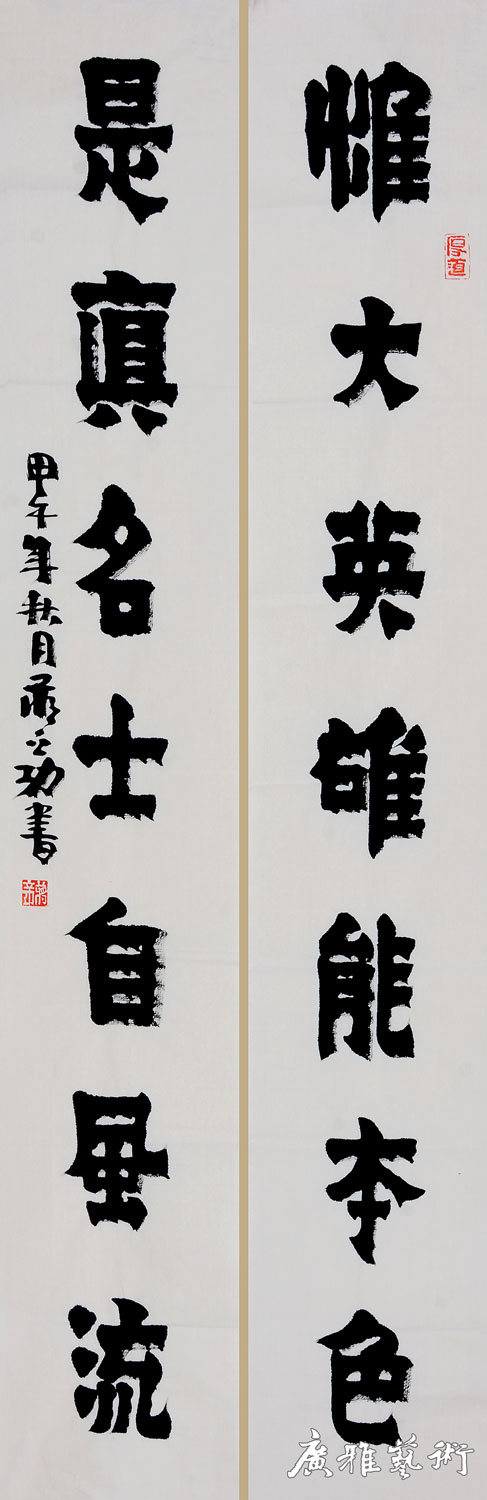 惟大英雄能本色
厚道
是真名士自風流
甲午年秋月
書
廣雅藝術